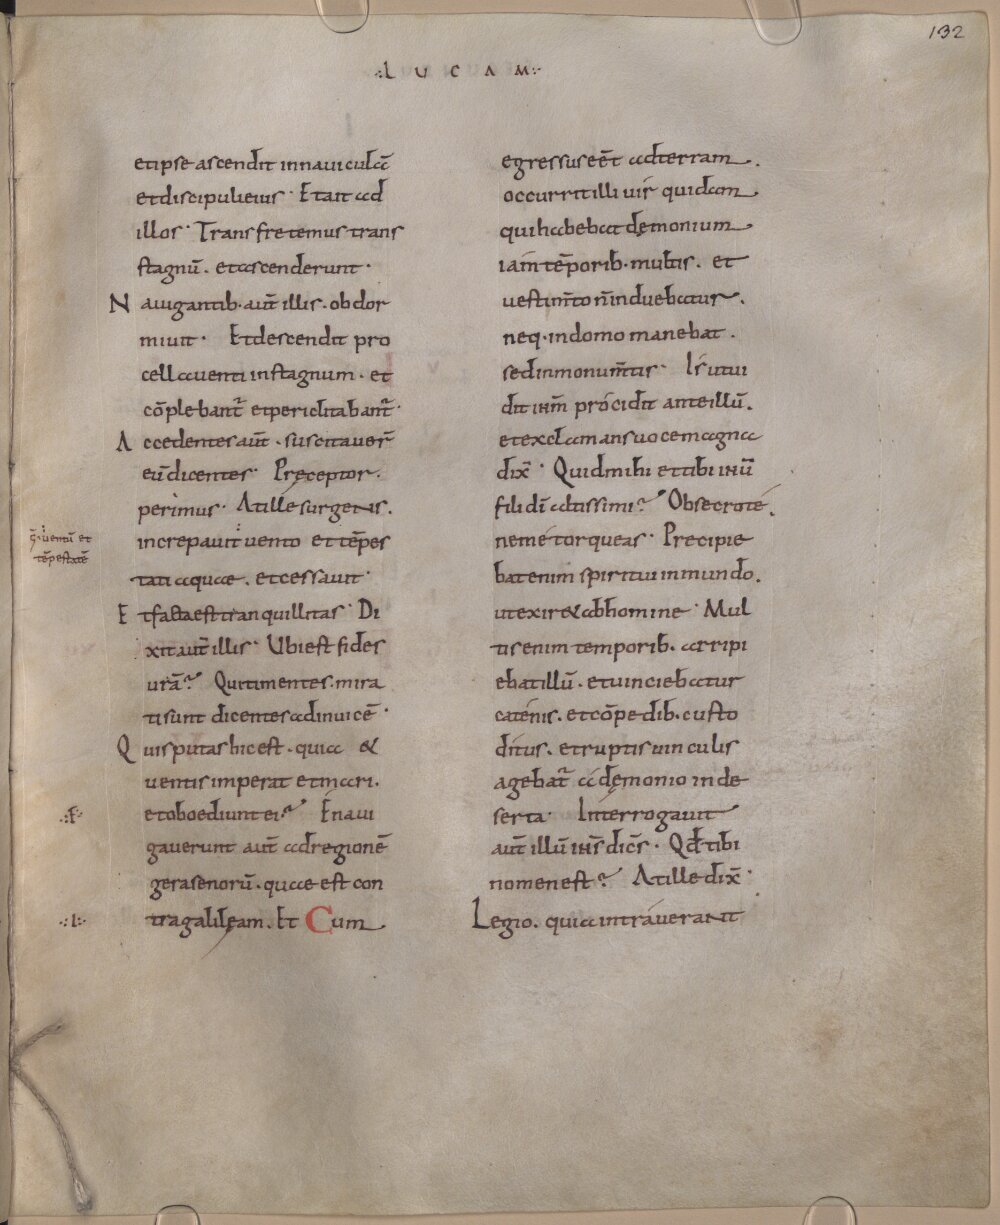 132
·:LUCAM:·
et ipse ascendit in naviculā
et discipuli eius· Et ait ad
illos· Transfretemus trans
stagnū. et ascenderunt·
Navigantib· aut̄ illis. obdor
mivit· Et descendit pro
cella venti in stagnum. et
cōplebant̄ et periclitabant̄·
Accedentes aut̄. suscitaver̄
eū dicentes· Pręceptor.
perimus· At ille surgens.
increpavit vento et tēpes
tati aquae. et cessavit·
Et facta est tranquillitas· Di
xit aut̄ illis· Ubi est fides
vr̄a? Qui timentes. mira
ti sunt dicentes ad invicē·
Quis putas hic est. quia &
ventis imperat et mari.
et oboediunt ei? Enavi
gaverunt aut̄ ad regionē
gerasenorū. quae est con
tra galilęam. Et Cum
ventū et
tēpestatē
egressus eēt ad terram.
occurrit illi vir quidam
qui habebat dęmonium
iam tēporib· multis. et
vestim̄to n̄ induebatur.
neq· in domo manebat.
sed in monum̄tis· Is ut vi
dit ihm̄ procidit ante illū.
et exclamans voce magna
dix̄· Quid mihi et tibi ihū
fili dī altissimi? Obsecro te.
ne me torqueas· Precipie
bat enim spiritui inmundo.
ut exir& ab homine· Mul
tis enim temporib. arripi
ebat illū. et vinciebatur
catenis. et cōpedib. custo
ditus. et ruptis vinculis
agebat̄ a dęmonio in de
serta· Interrogavit
aut̄ illū ihs̄ dic̄s· Qd̄ tibi
nomen est? At ille dix̄·
Legio. quia intraverant